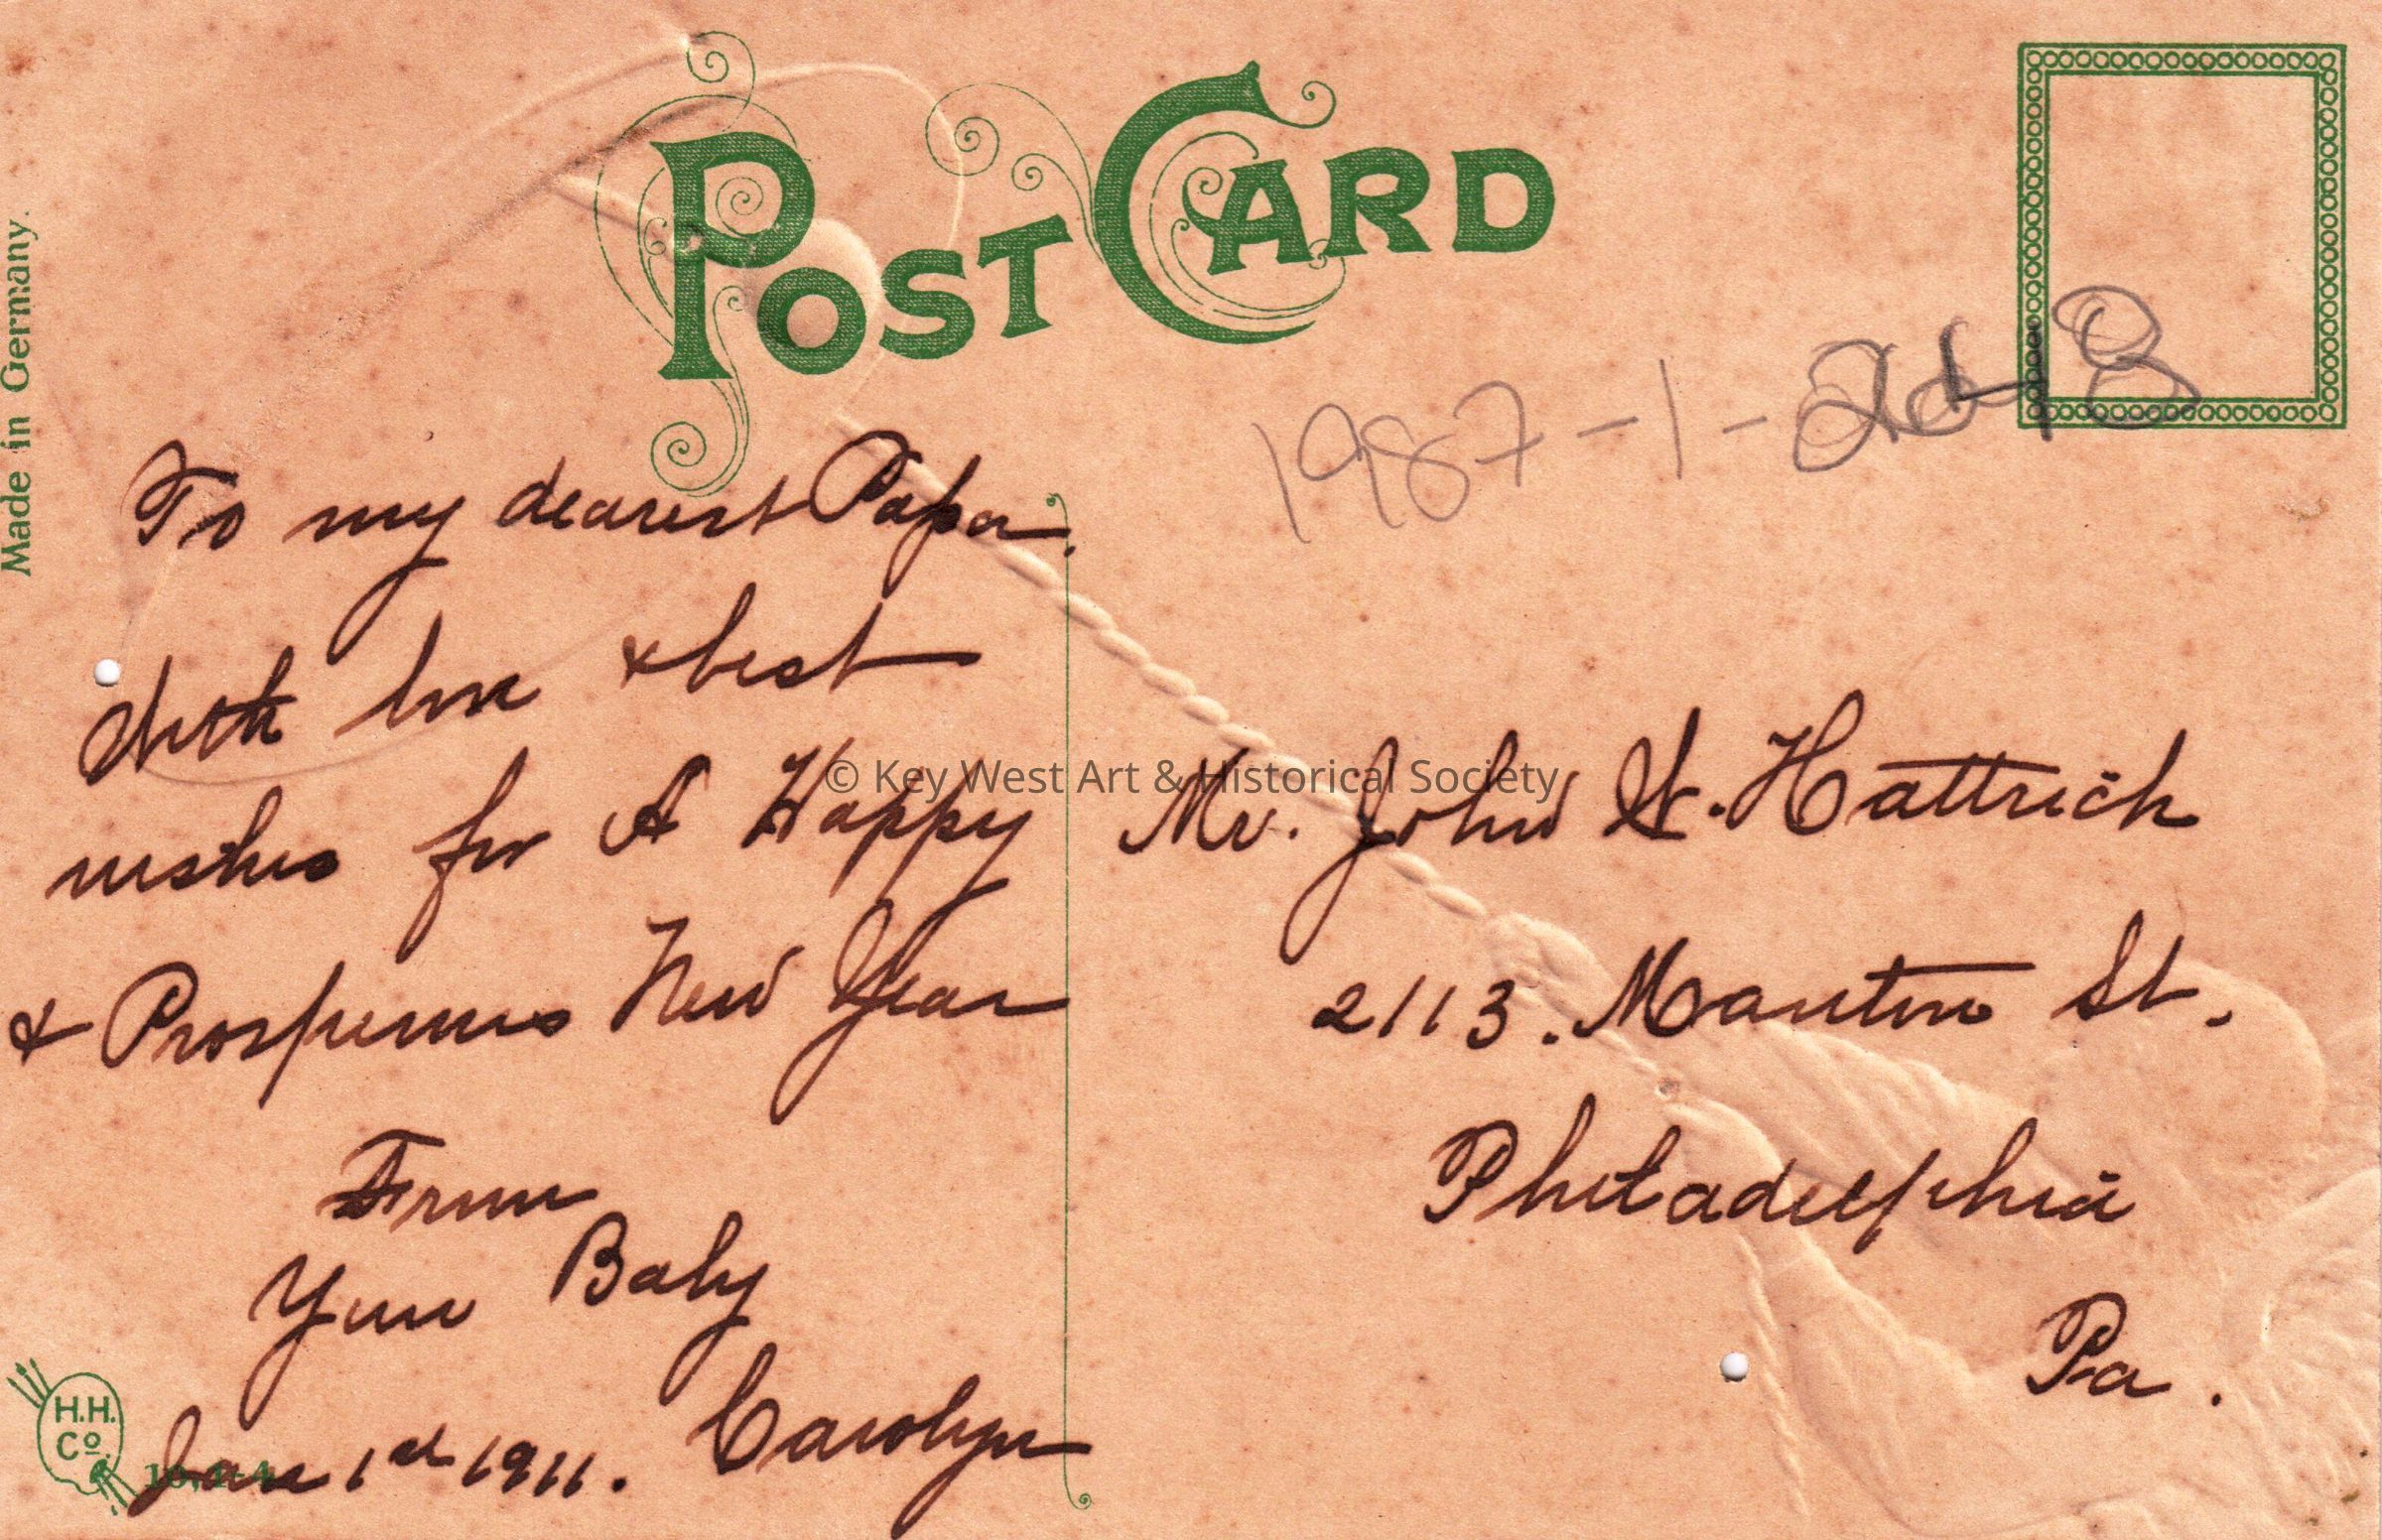 POST CARD
Made in Germany.
1987-1-
To my dearest Papa.
With love & best
wishes for A Happy
& Prosperous New Year
From
Your Baby
Carolyn
Jan 1st 1911.
Mr. John H. Hattrich
2113. Manton St.
Philadelphia
Pa.
H.H.
Co.
© Key West Art & Historical Society